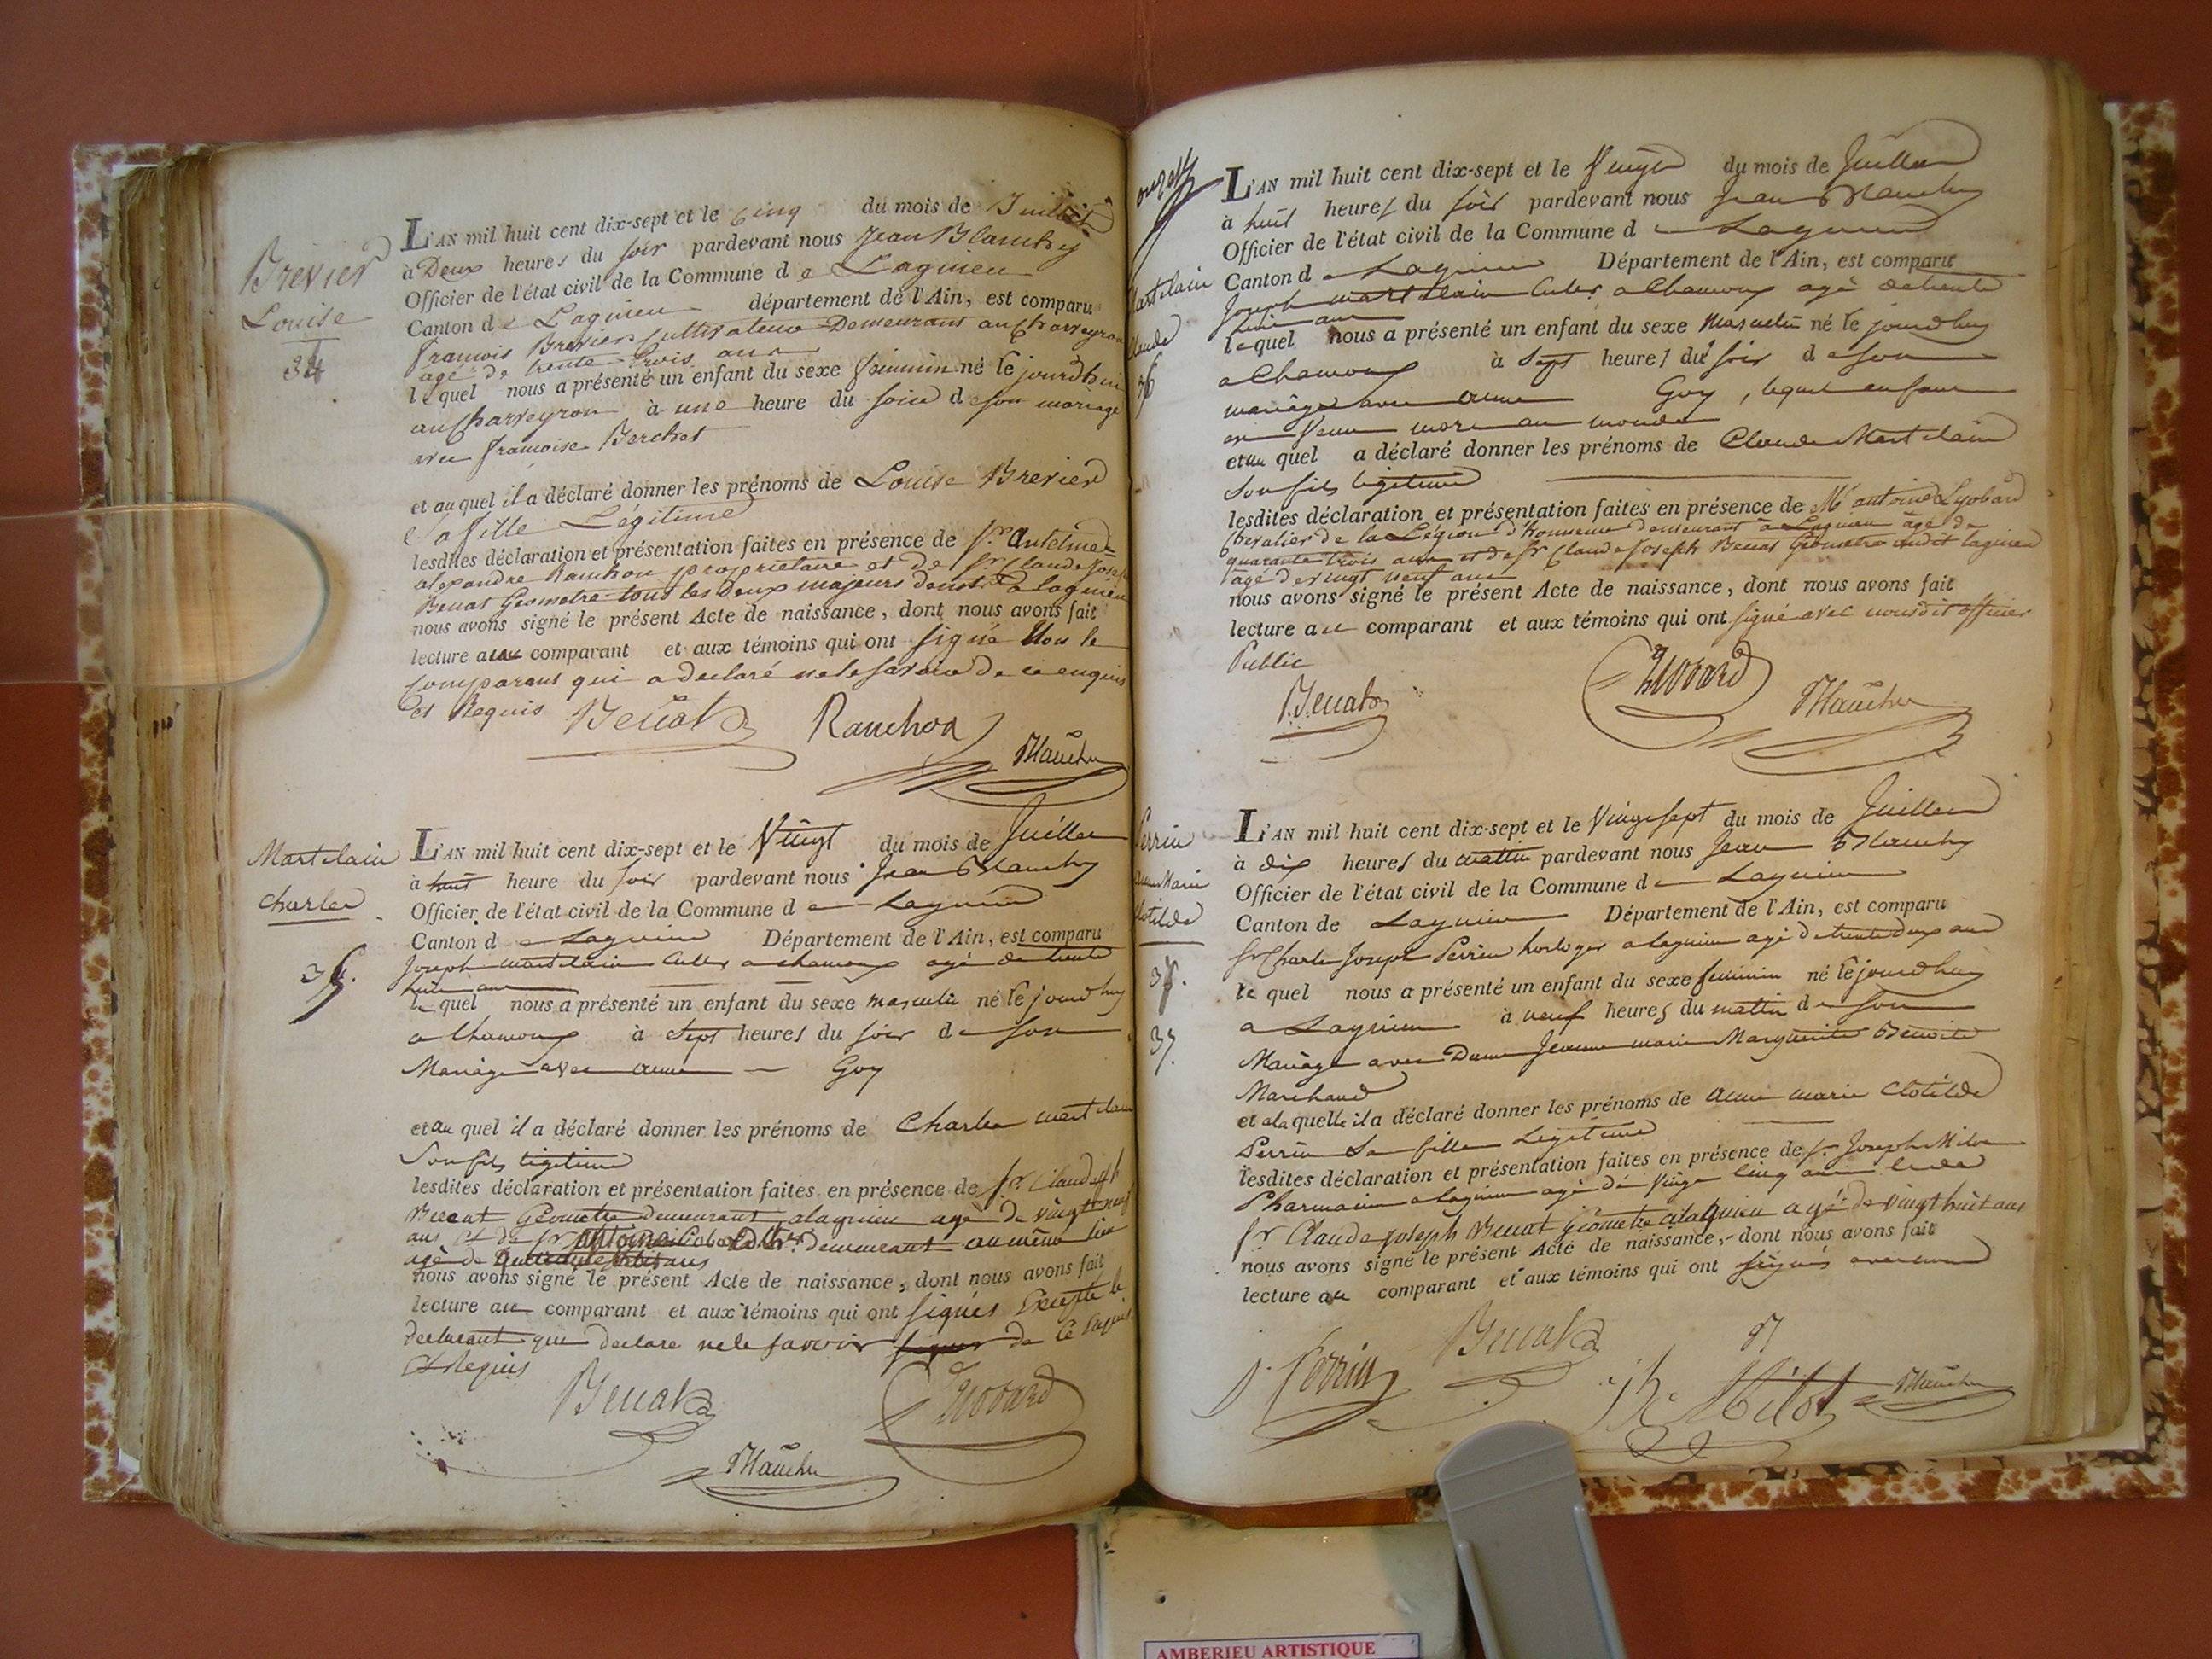 Brevier
Louise
34
L'AN mil huit cent dix-sept et le cinq du mois de Juillet
à Deux heures du soir pardevant nous Jean Blanchy
Officier de l'état civil de la Commune de Lagnieu
Canton de Lagnieu département de l'Ain, est comparu
francois Brevier cultivateur Demeurant au Charveyron
agé de trente trois ans
lequel nous a présenté un enfant du sexe feminin né le jourdhui
au Charveyron à une heure du soir de son mariage
avec francoise Berchet
et auquel il a déclaré donner les prénoms de Louise Brevier
Sa fille Légitime
lesdites déclaration et présentation faites en présence de Sr Antelme
alexandre Ranchon propriétaire et de Sr Claude Joseph
Benat Géometre tous les deux majeurs demt à lagnieu
nous avons signé le présent Acte de naissance, dont nous avons fait
lecture au comparant et aux témoins qui ont signé Non le
Comparant qui a declaré ne le savoir de ce enquis
et Requis
Benat Ranchon
Blanchy
Martelain
Charles
35.
L'AN mil huit cent dix-sept et le Vingt du mois de Juillet
à huit heure du soir pardevant nous Jean Blanchy
Officier de l'état civil de la Commune de Lagnieu
Canton de Lagnieu Département de l'Ain, est comparu
Joseph martelain Culter a chamoux agé de trente
huit ans
lequel nous a présenté un enfant du sexe masculin né le jourdhuy
a Chamoux à Sept heures du soir de son
Mariage avec anne Goy
et au quel il a déclaré donner les prénoms de Charles martelain
Son fils légitime
lesdites déclaration et présentation faites en présence de Sr. Claude jph
Benat Géometre demeurant a lagnieu agé de vingt neuf
ans et de Sr antoine demeurant au même lieu
agé de ans
nous avons signé le présent Acte de naissance, dont nous avons fait
lecture au comparant et aux témoins qui ont signés Excepté le
declarant que declare ne le savoir signer de ce enquis
et Requis
Benat Lyobard
Blanchy
Martelain
Claude
36
L'AN mil huit cent dix-sept et le Vingt du mois de Juillet
à huit heures du soir pardevant nous Jean Blanchy
Officier de l'état civil de la Commune de Lagnieu
Canton de Lagnieu Département de l'Ain, est comparu
Joseph martelain Culter a Chamoux agé de trente
huit ans
lequel nous a présenté un enfant du sexe masculin né le jourdhuy
a Chamoux à Sept heures du soir de son
mariage avec anne Goy, lequel enfant
est venu mort au monde
et au quel a déclaré donner les prénoms de Claude Martelain
Son fils légitime
lesdites déclaration et présentation faites en présence de Mr antoine Lyobard
Chevalier de la Légion d'honneur demeurant à Lagnieu âgé de
quarante trois ans et de Sr Claude Joseph Benat Géometre audit lagnieu
agé de vingt neuf ans
nous avons signé le présent Acte de naissance, dont nous avons fait
lecture au comparant et aux témoins qui ont signé avec nousdit officier
Public
Benat Lyobard Blanchy
Perrin
anne Marie
Clotilde
37.
37.
L'AN mil huit cent dix-sept et le Vingt sept du mois de Juillet
à dix heures du mattin pardevant nous Jean Blanchy
Officier de l'état civil de la Commune de Lagnieu
Canton de Lagnieu Département de l'Ain, est comparu
Sr Charle Joseph Perrin horloger a lagnieu agé de trente deux ans
le quel nous a présenté un enfant du sexe feminin né le jourdhuy
a Lagnieu à neuf heures du mattin de son
Mariage avec Dame Jeanne marie Marguerite Benoite
Marchand
et a la quelle il a déclaré donner les prénoms de anne marie Clotilde
Perrin Sa fille Légitime
lesdites déclaration et présentation faites en présence de Sr Joseph Milot
Pharmacien a lagnieu agé de vingt cinq ans et de
Sr Claude joseph Benat Géometre a lagnieu agé de vingt huit ans
nous avons signé le présent Acte de naissance, dont nous avons fait
lecture au comparant et aux témoins qui ont signés avec nous
Perrin Benat
Milot Blanchy
AMBERIEU ARTISTIQUE